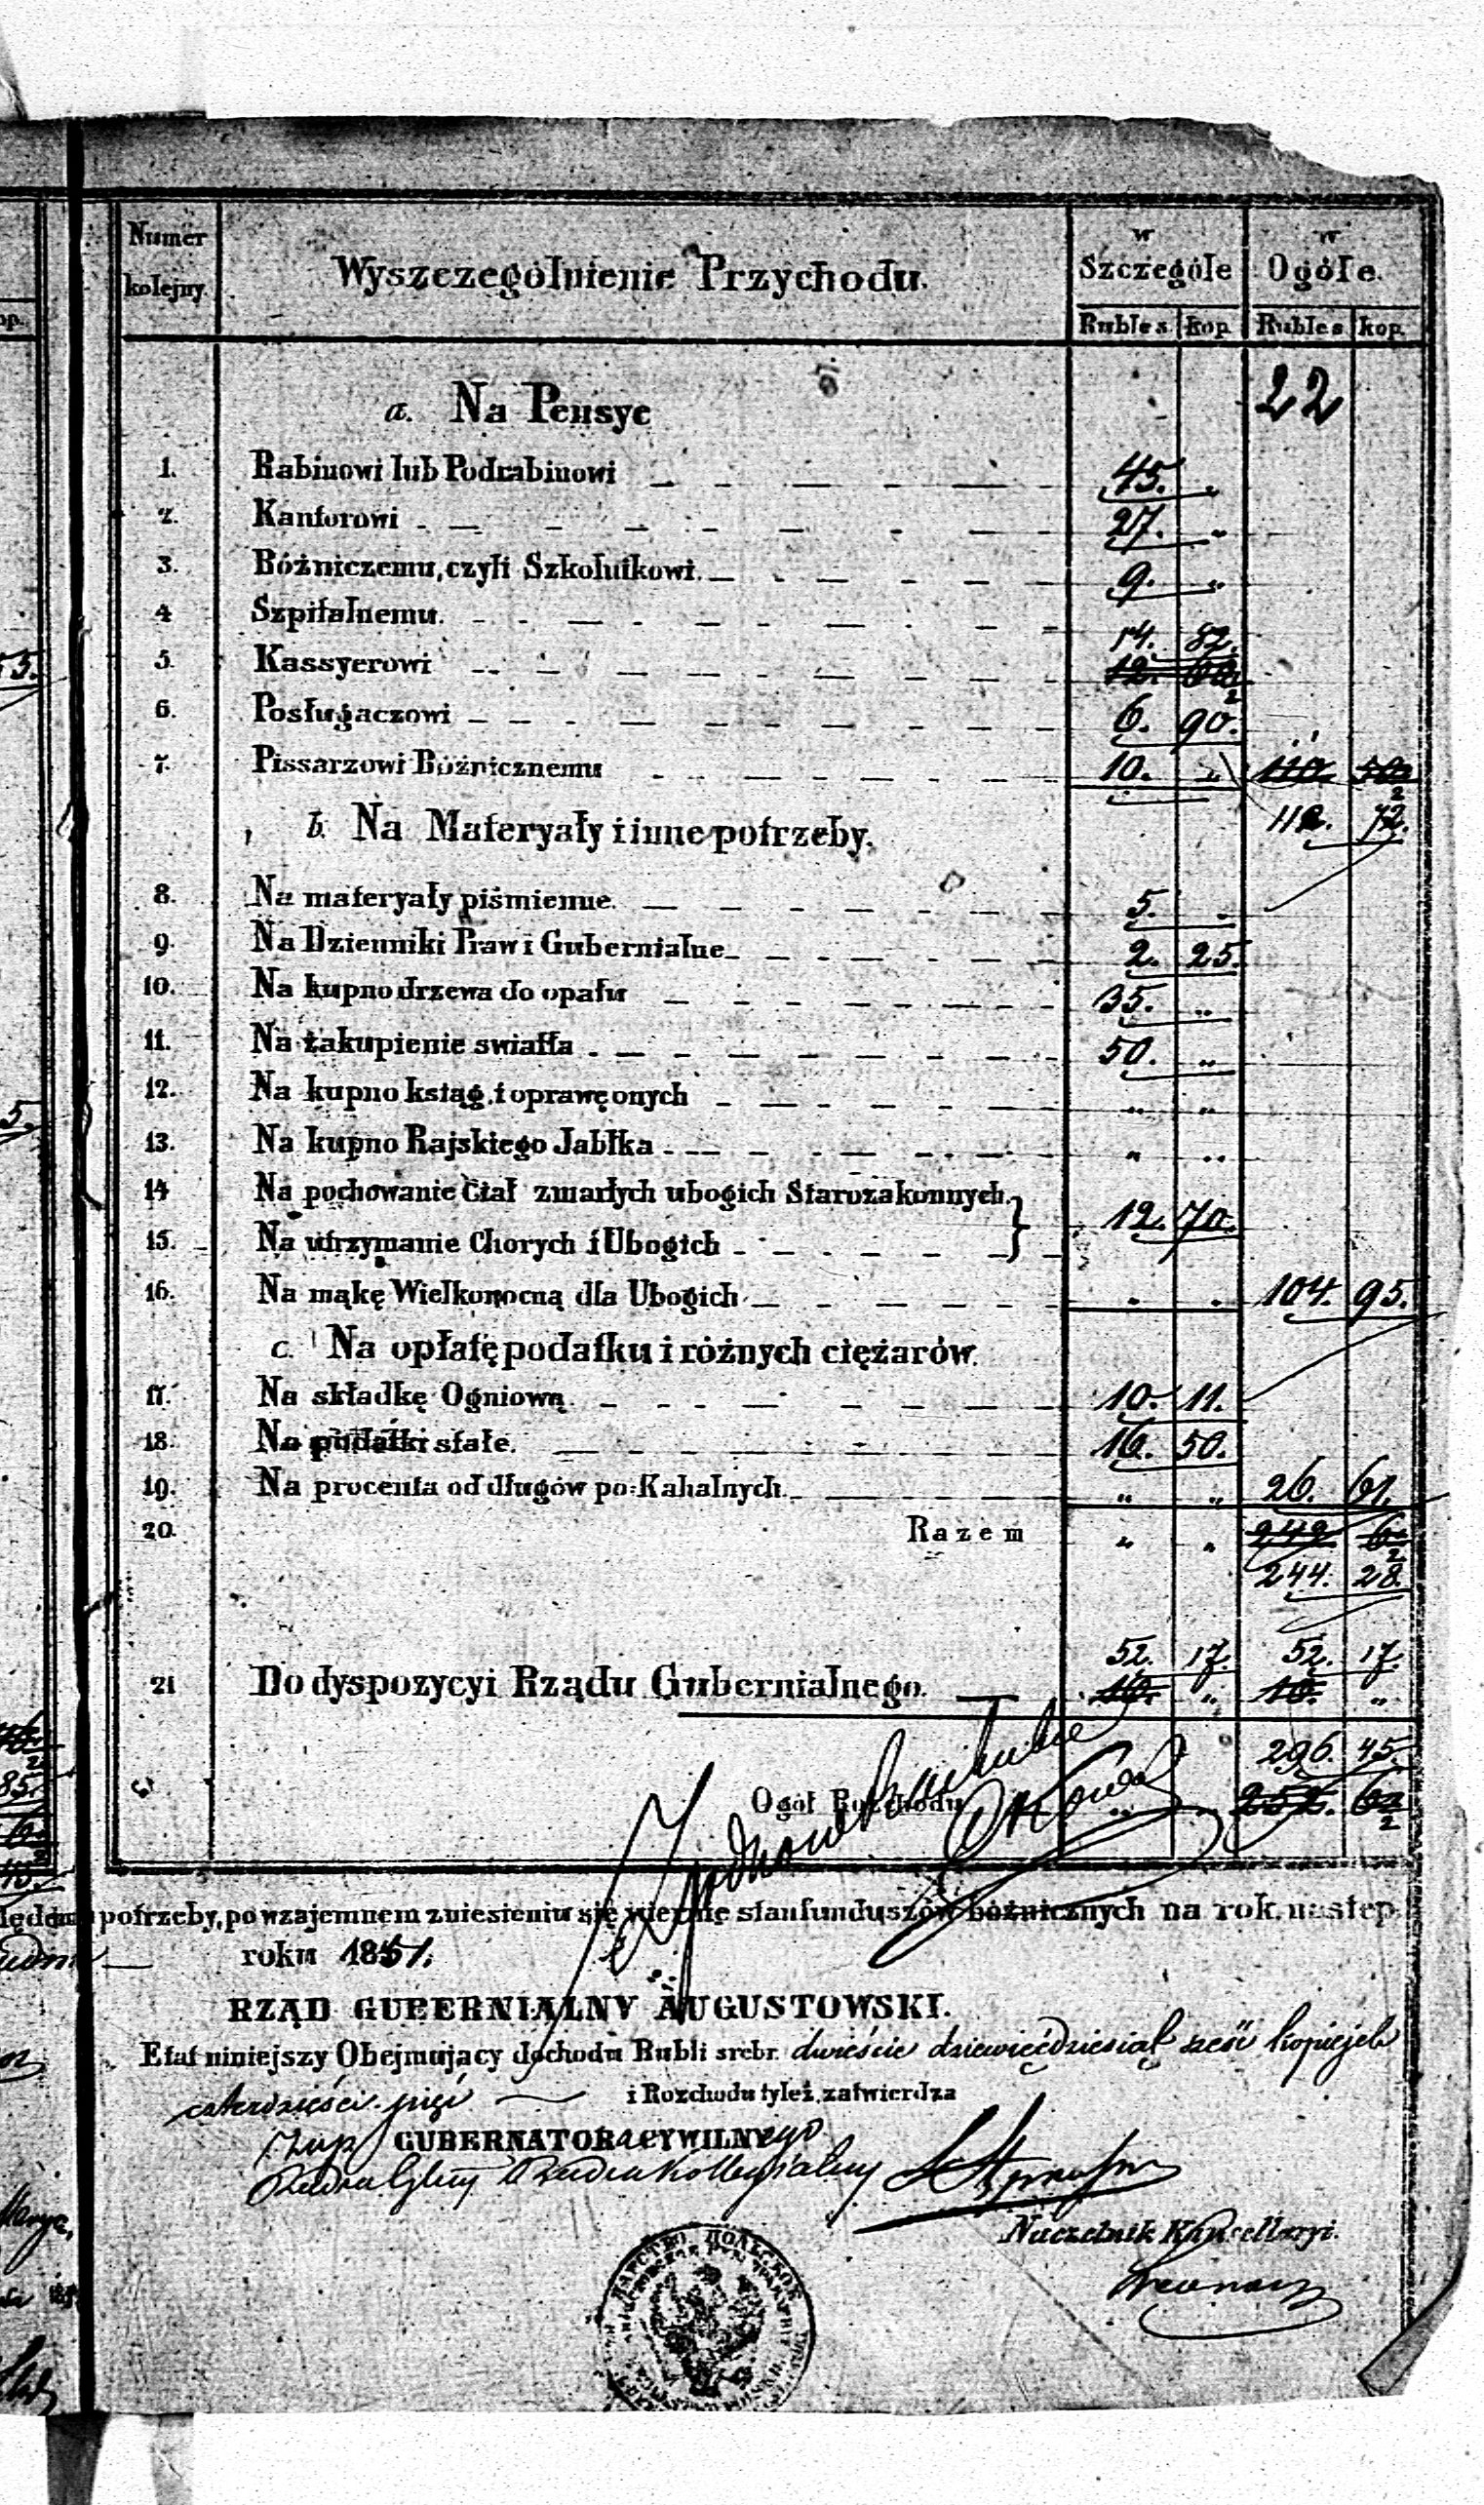 Numer kolejny.
Wyszczególnienie Przychodu.
w Szczególe
w Ogóle.
Rubles kop. Rubles kop.
22
a. Na Pensye
1. Rabinowi lub Podrabinowi 45. "
2. Kantorowi 27. "
3. Bóźniczemu, czyli Szkolnikowi. 9. "
4 Szpitalnemu.
14. 82.
5. Kassyerowi
6. Posługaczowi 6. 90.
7. Pissarzowi Bóźnicznemu 10. "
b. Na Materyały i inne potrzeby. 112. 72.
8. Na materyały piśmienne. 5. "
9. Na Dzienniki Praw i Gubernialne 2. 25.
10. Na kupno drzewa do opału 35. "
11. Na zakupienie swiatła 50. "
12. Na kupno ksiąg, i oprawę onych " "
13. Na kupno Rajskiego Jabłka " "
14 Na pochowanie Ciał zmarłych ubogich Starozakonnych.
12. 70.
15. Na utrzymanie Chorych i Ubogich
16. Na mąkę Wielkonocną dla Ubogich " " 104. 95.
c. Na opłatę podatku i różnych ciężarów.
17. Na składkę Ogniową 10. 11.
18. Na podatki stałe. 16. 50.
19. Na procenta od długów po-Kahalnych " " 26. 61.
20. Razem " " 242 6
244. 28.
52. 17. 52. 17.
21 Do dyspozycyi Rządu Gubernialnego. 10. " 10. "
296. 45.
Ogół Rozchodu 252.
potrzeby, po wzajemnem zniesieniu się stan funduszów bóźnicznych na rok nastep
roku 1851.
RZĄD GUBERNIALNY AUGUSTOWSKI.
Etat niniejszy Obejmujący dochodu Rubli srebr. dwieście dziewięćdziesiąt sześć kopiejek
czterdzieści pięć i Rozchodu tyleż, zatwierdza
GUBERNATORA CYWILNEGO
Radca Kollegialny
Naczelnik Kancellaryi.